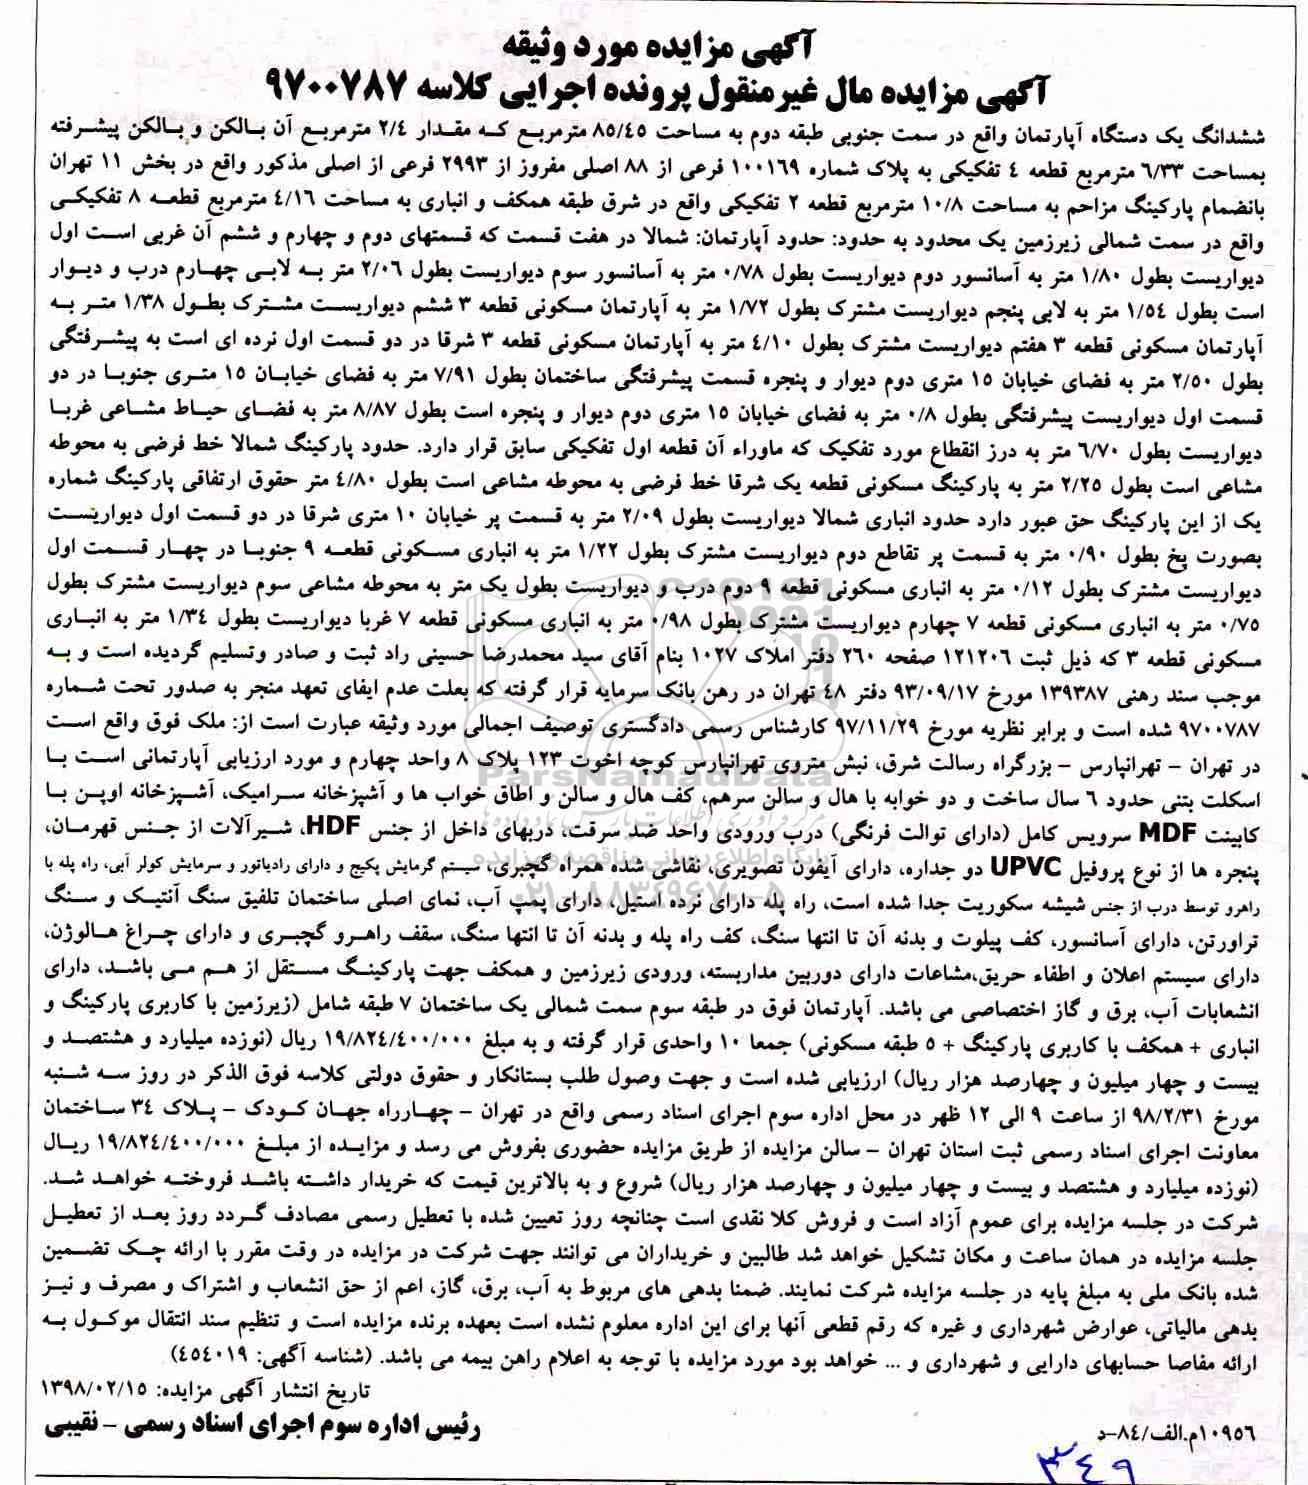 آگهی مزایده مورد وثیقه
آگهی مزایده مال غیرمنقول پرونده اجرایی کلاسه ۹۷۰۰۷۸۷
ششدانگ یک دستگاه آپارتمان واقع در سمت جنوبی طبقه دوم به مساحت ۸۵/۴۵ مترمربع که مقدار ۲/۴ مترمربع آن بالکن و بالکن پیشرفته
بمساحت ۶/۳۳ مترمربع قطعه ۴ تفکیکی به پلاک شماره ۱۰۰۱۶۹ فرعی از ۸۸ اصلی مفروز از ۲۹۹۳ فرعی از اصلی مذکور واقع در بخش ۱۱ تهران
بانضمام پارکینگ مزاحم به مساحت ۱۰/۸ مترمربع قطعه ۲ تفکیکی واقع در شرق طبقه همکف و انباری به مساحت ۴/۱۶ مترمربع قطعه ۸ تفکیکی
واقع در سمت شمالی زیرزمین یک محدود به حدود: حدود آپارتمان: شمالا در هفت قسمت که قسمتهای دوم و چهارم و ششم آن غربی است اول
دیواریست بطول ۱/۸۰ متر به آسانسور دوم دیواریست بطول ۰/۷۸ متر به آسانسور سوم دیواریست بطول ۲/۰۶ متر به لابی چهارم درب و دیوار
است بطول ۱/۵۴ متر به لابی پنجم دیواریست مشترک بطول ۱/۷۲ متر به آپارتمان مسکونی قطعه ۳ ششم دیواریست مشترک بطول ۱/۳۸ متر به
آپارتمان مسکونی قطعه ۳ هفتم دیواریست مشترک بطول ۴/۱۰ متر به آپارتمان مسکونی قطعه ۳ شرقا در دو قسمت اول نرده ای است به پیشرفتگی
بطول ۲/۵۰ متر به فضای خیابان ۱۵ متری دوم دیوار و پنجره قسمت پیشرفتگی ساختمان بطول ۷/۹۱ متر به فضای خیابان ۱۵ متری جنوبا در دو
قسمت اول دیواریست پیشرفتگی بطول ۰/۸ متر به فضای خیابان ۱۵ متری دوم دیوار و پنجره است بطول ۸/۸۷ متر به فضای حیاط مشاعی غربا
دیواریست بطول ۶/۷۰ متر به درز انقطاع مورد تفکیک که ماوراء آن قطعه اول تفکیکی سابق قرار دارد. حدود پارکینگ شمالا خط فرضی به محوطه
مشاعی است بطول ۲/۲۵ متر به پارکینگ مسکونی قطعه یک شرقا خط فرضی به محوطه مشاعی است بطول ۴/۸۰ متر حقوق ارتفاقی پارکینگ شماره
یک از این پارکینگ حق عبور دارد حدود انباری شمالا دیواریست بطول ۲/۰۹ متر به قسمت پر خیابان ۱۰ متری شرقا در دو قسمت اول دیواریست
بصورت پخ بطول ۰/۹۰ متر به قسمت پر تقاطع دوم دیواریست مشترک بطول ۱/۲۲ متر به انباری مسکونی قطعه ۹ جنوبا در چهار قسمت اول
دیواریست مشترک بطول ۰/۱۲ متر به انباری مسکونی قطعه ۹ دوم درب و دیواریست بطول یک متر به محوطه مشاعی سوم دیواریست مشترک بطول
۰/۷۵ متر به انباری مسکونی قطعه ۷ چهارم دیواریست مشترک بطول ۰/۹۸ متر به انباری مسکونی قطعه ۷ غربا دیواریست بطول ۱/۳۴ متر به انباری
مسکونی قطعه ۳ که ذیل ثبت ۱۲۱۲۰۶ صفحه ۲۶۰ دفتر املاک ۱۰۲۷ بنام آقای سید محمدرضا حسینی راد ثبت و صادر وتسلیم گردیده است و به
موجب سند رهنی ۱۳۹۳۸۷ مورخ ۹۳/۰۹/۱۷ دفتر ۴۸ تهران در رهن بانک سرمایه قرار گرفته که بعلت عدم ایفای تعهد منجر به صدور تحت شماره
۹۷۰۰۷۸۷ شده است و برابر نظریه مورخ ۹۷/۱۱/۲۹ کارشناس رسمی دادگستری توصیف اجمالی مورد وثیقه عبارت است از: ملک فوق واقع است
در تهران - تهرانپارس - بزرگراه رسالت شرق، نبش متروی تهرانپارس کوچه اخوت ۱۲۳ پلاک ۸ واحد چهارم و مورد ارزیابی آپارتمانی است با
اسکلت بتنی حدود ۶ سال ساخت و دو خوابه با هال و سالن سرهم، کف هال و سالن و اطاق خواب ها و آشپزخانه سرامیک، آشپزخانه اوپن با
کابینت MDF سرویس کامل (دارای توالت فرنگی) درب ورودی واحد ضد سرقت، دربهای داخل از جنس HDF، شیرآلات از جنس قهرمان،
پنجره ها از نوع پروفیل UPVC دو جداره، دارای آیفون تصویری، نقاشی شده همراه گچبری، سیستم گرمایش پکیج و دارای رادیاتور و سرمایش کولر آبی، راه پله با
راهرو توسط درب از جنس شیشه سکوریت جدا شده است، راه پله دارای نرده استیل، دارای پمپ آب، نمای اصلی ساختمان تلفیق سنگ آنتیک و سنگ
تراورتن، دارای آسانسور، کف پیلوت و بدنه آن تا انتها سنگ، کف راه پله و بدنه آن تا انتها سنگ، سقف راهرو گچبری و دارای چراغ هالوژن،
دارای سیستم اعلان و اطفاء حریق،مشاعات دارای دوربین مداربسته، ورودی زیرزمین و همکف جهت پارکینگ مستقل از هم می باشد، دارای
انشعابات آب، برق و گاز اختصاصی می باشد. آپارتمان فوق در طبقه سوم سمت شمالی یک ساختمان ۷ طبقه شامل (زیرزمین با کاربری پارکینگ و
انباری + همکف با کاربری پارکینگ + ۵ طبقه مسکونی) جمعا ۱۰ واحدی قرار گرفته و به مبلغ ۱۹/۸۲۴/۴۰۰/۰۰۰ ریال (نوزده میلیارد و هشتصد و
بیست و چهار میلیون و چهارصد هزار ریال) ارزیابی شده است و جهت وصول طلب بستانکار و حقوق دولتی کلاسه فوق الذکر در روز سه شنبه
مورخ ۹۸/۲/۳۱ از ساعت ۹ الی ۱۲ ظهر در محل اداره سوم اجرای اسناد رسمی واقع در تهران - چهارراه جهان کودک - پلاک ۳۴ ساختمان
معاونت اجرای اسناد رسمی ثبت استان تهران - سالن مزایده از طریق مزایده حضوری بفروش می رسد و مزایده از مبلغ ۱۹/۸۲۴/۴۰۰/۰۰۰ ریال
(نوزده میلیارد و هشتصد و بیست و چهار میلیون و چهارصد هزار ریال) شروع و به بالاترین قیمت که خریدار داشته باشد فروخته خواهد شد.
شرکت در جلسه مزایده برای عموم آزاد است و فروش کلا نقدی است چنانچه روز تعیین شده با تعطیل رسمی مصادف گردد روز بعد از تعطیل
جلسه مزایده در همان ساعت و مکان تشکیل خواهد شد طالبین و خریداران می توانند جهت شرکت در مزایده در وقت مقرر با ارائه چک تضمین
شده بانک ملی به مبلغ پایه در جلسه مزایده شرکت نمایند. ضمنا بدهی های مربوط به آب، برق، گاز، اعم از حق انشعاب و اشتراک و مصرف و نیز
بدهی مالیاتی، عوارض شهرداری و غیره که رقم قطعی آنها برای این اداره معلوم نشده است بعهده برنده مزایده است و تنظیم سند انتقال موکول به
ارائه مفاصا حسابهای دارایی و شهرداری و ... خواهد بود مورد مزایده با توجه به اعلام راهن بیمه می باشد. (شناسه آگهی: ۴۵۴۰۱۹)
تاریخ انتشار آگهی مزایده: ۱۳۹۸/۰۲/۱۵
رئیس اداره سوم اجرای اسناد رسمی - نقیبی
۱۰۹۵۶م.الف/۸۴-د
۳۴۹
ParsNamadData
پایگاه اطلاع رسانی مناقصه و مزایده
۰۲۱-۸۸۳۴۹۶۷۰-۵